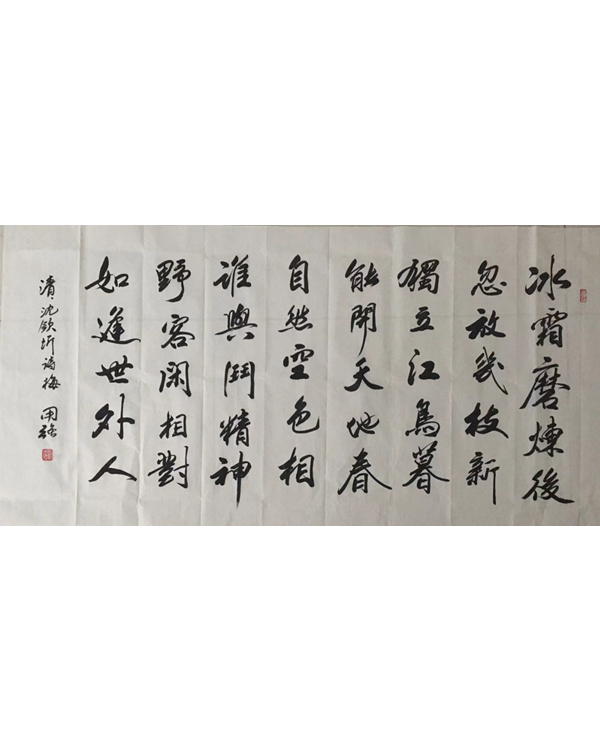 冰霜磨煉後
忽放幾枝新
獨立江島暮
能開天地春
自然空色相
誰與鬪精神
野客閑相對
如逢世外人
清沈欽圻詩梅